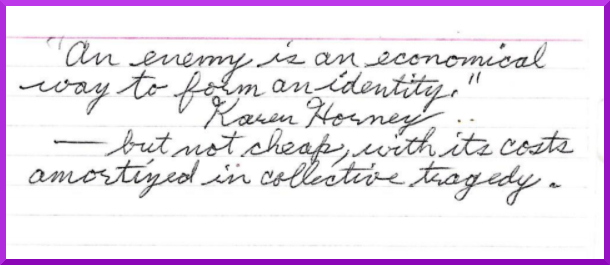 "An enemy is an economical
way to form an identity."
Karen Horney
— but not cheap, with its costs
amortized in collective tragedy.